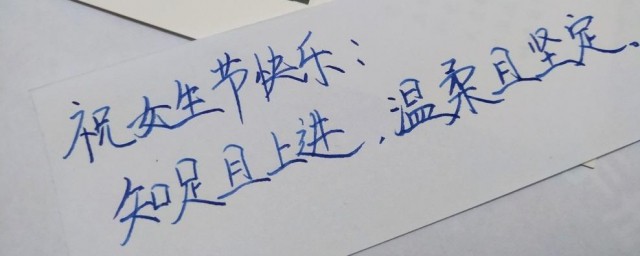 祝女生节快乐：
知足且上进，温柔且坚定.